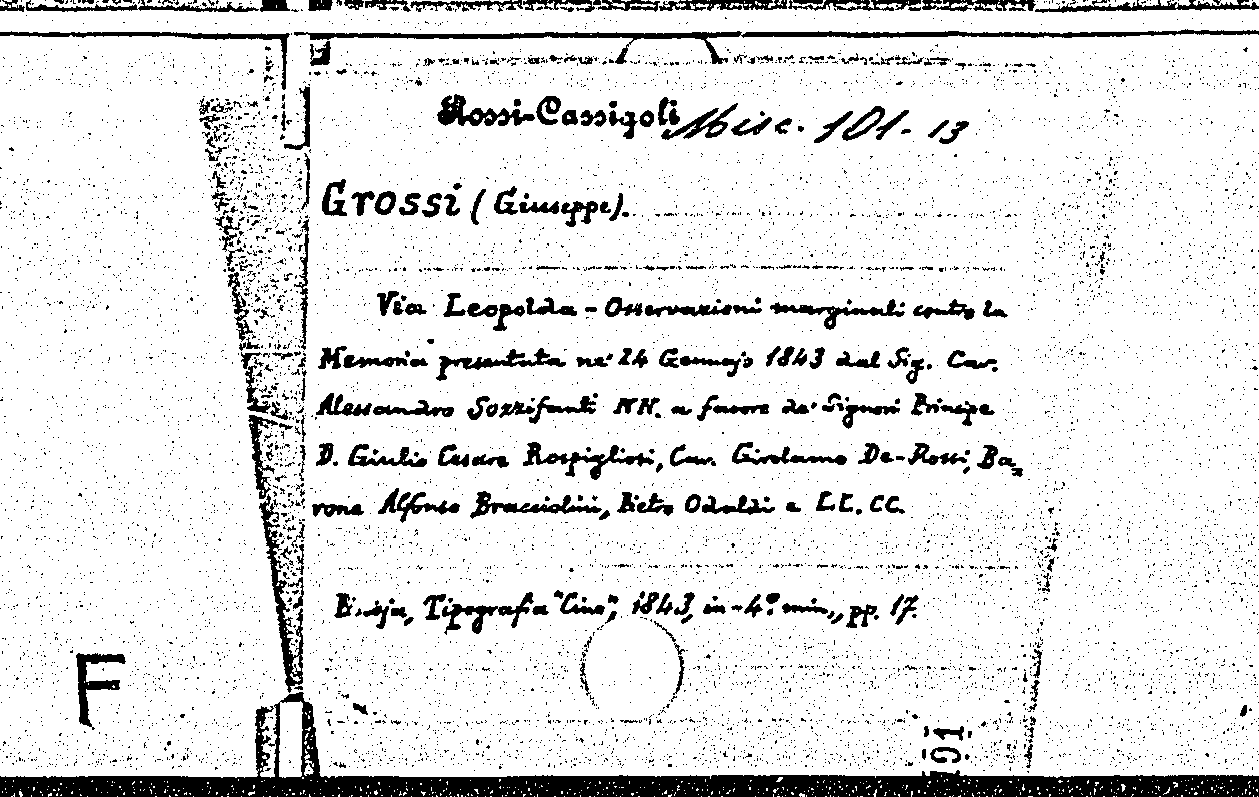 Rossi-Cassigoli Misc. 101-13
Grossi (Giuseppe).
Via Leopolda - Osservazioni marginali contro la
Memoria presentata ne' 24 Gennajo 1843 dal Sig. Cav.
Alessandro Sozzifanti NN. a favore de' Signori Principe
D. Giulio Cesare Rospigliosi, Cav. Girolamo De-Rossi, Ba=
rone Alfonso Bracciolini, Pietro Odaldi e LL. CC.
Pistoja, Tipografia "Cino", 1843, in-4º min., pp. 17.
F